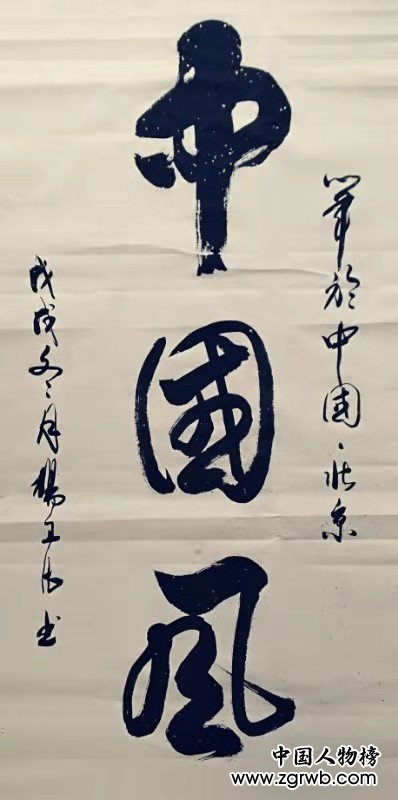 中國風
筆於中国·北京
戊戌冬月楊玉成书
中国人物榜
www.zgrwb.com